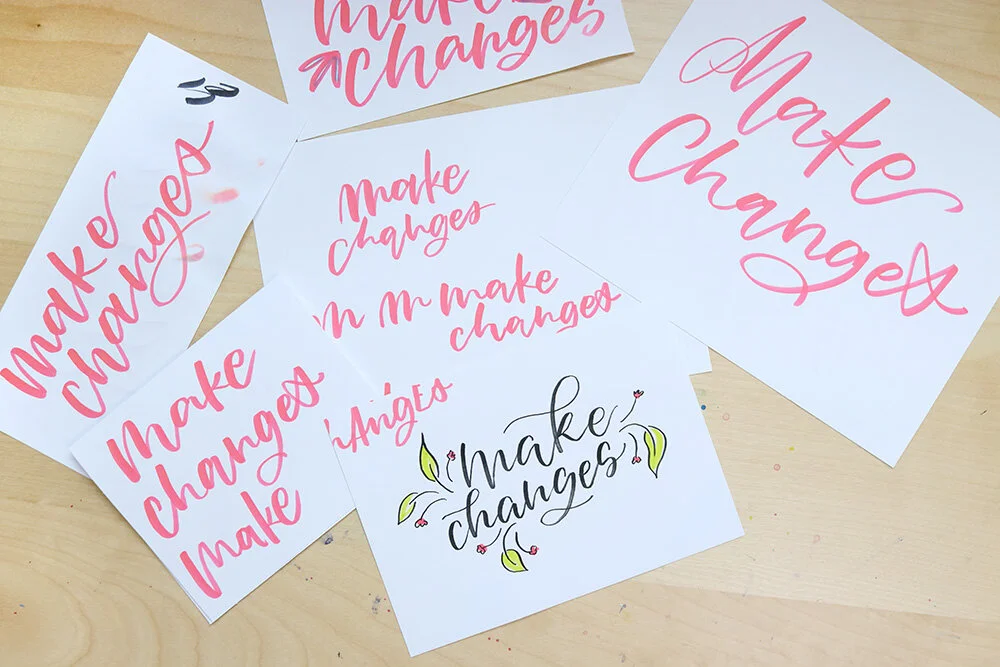 make
changes
make
changes
Make
Changes
make
changes
m m make
changes
make
changes
make
hAngEs
make
changes